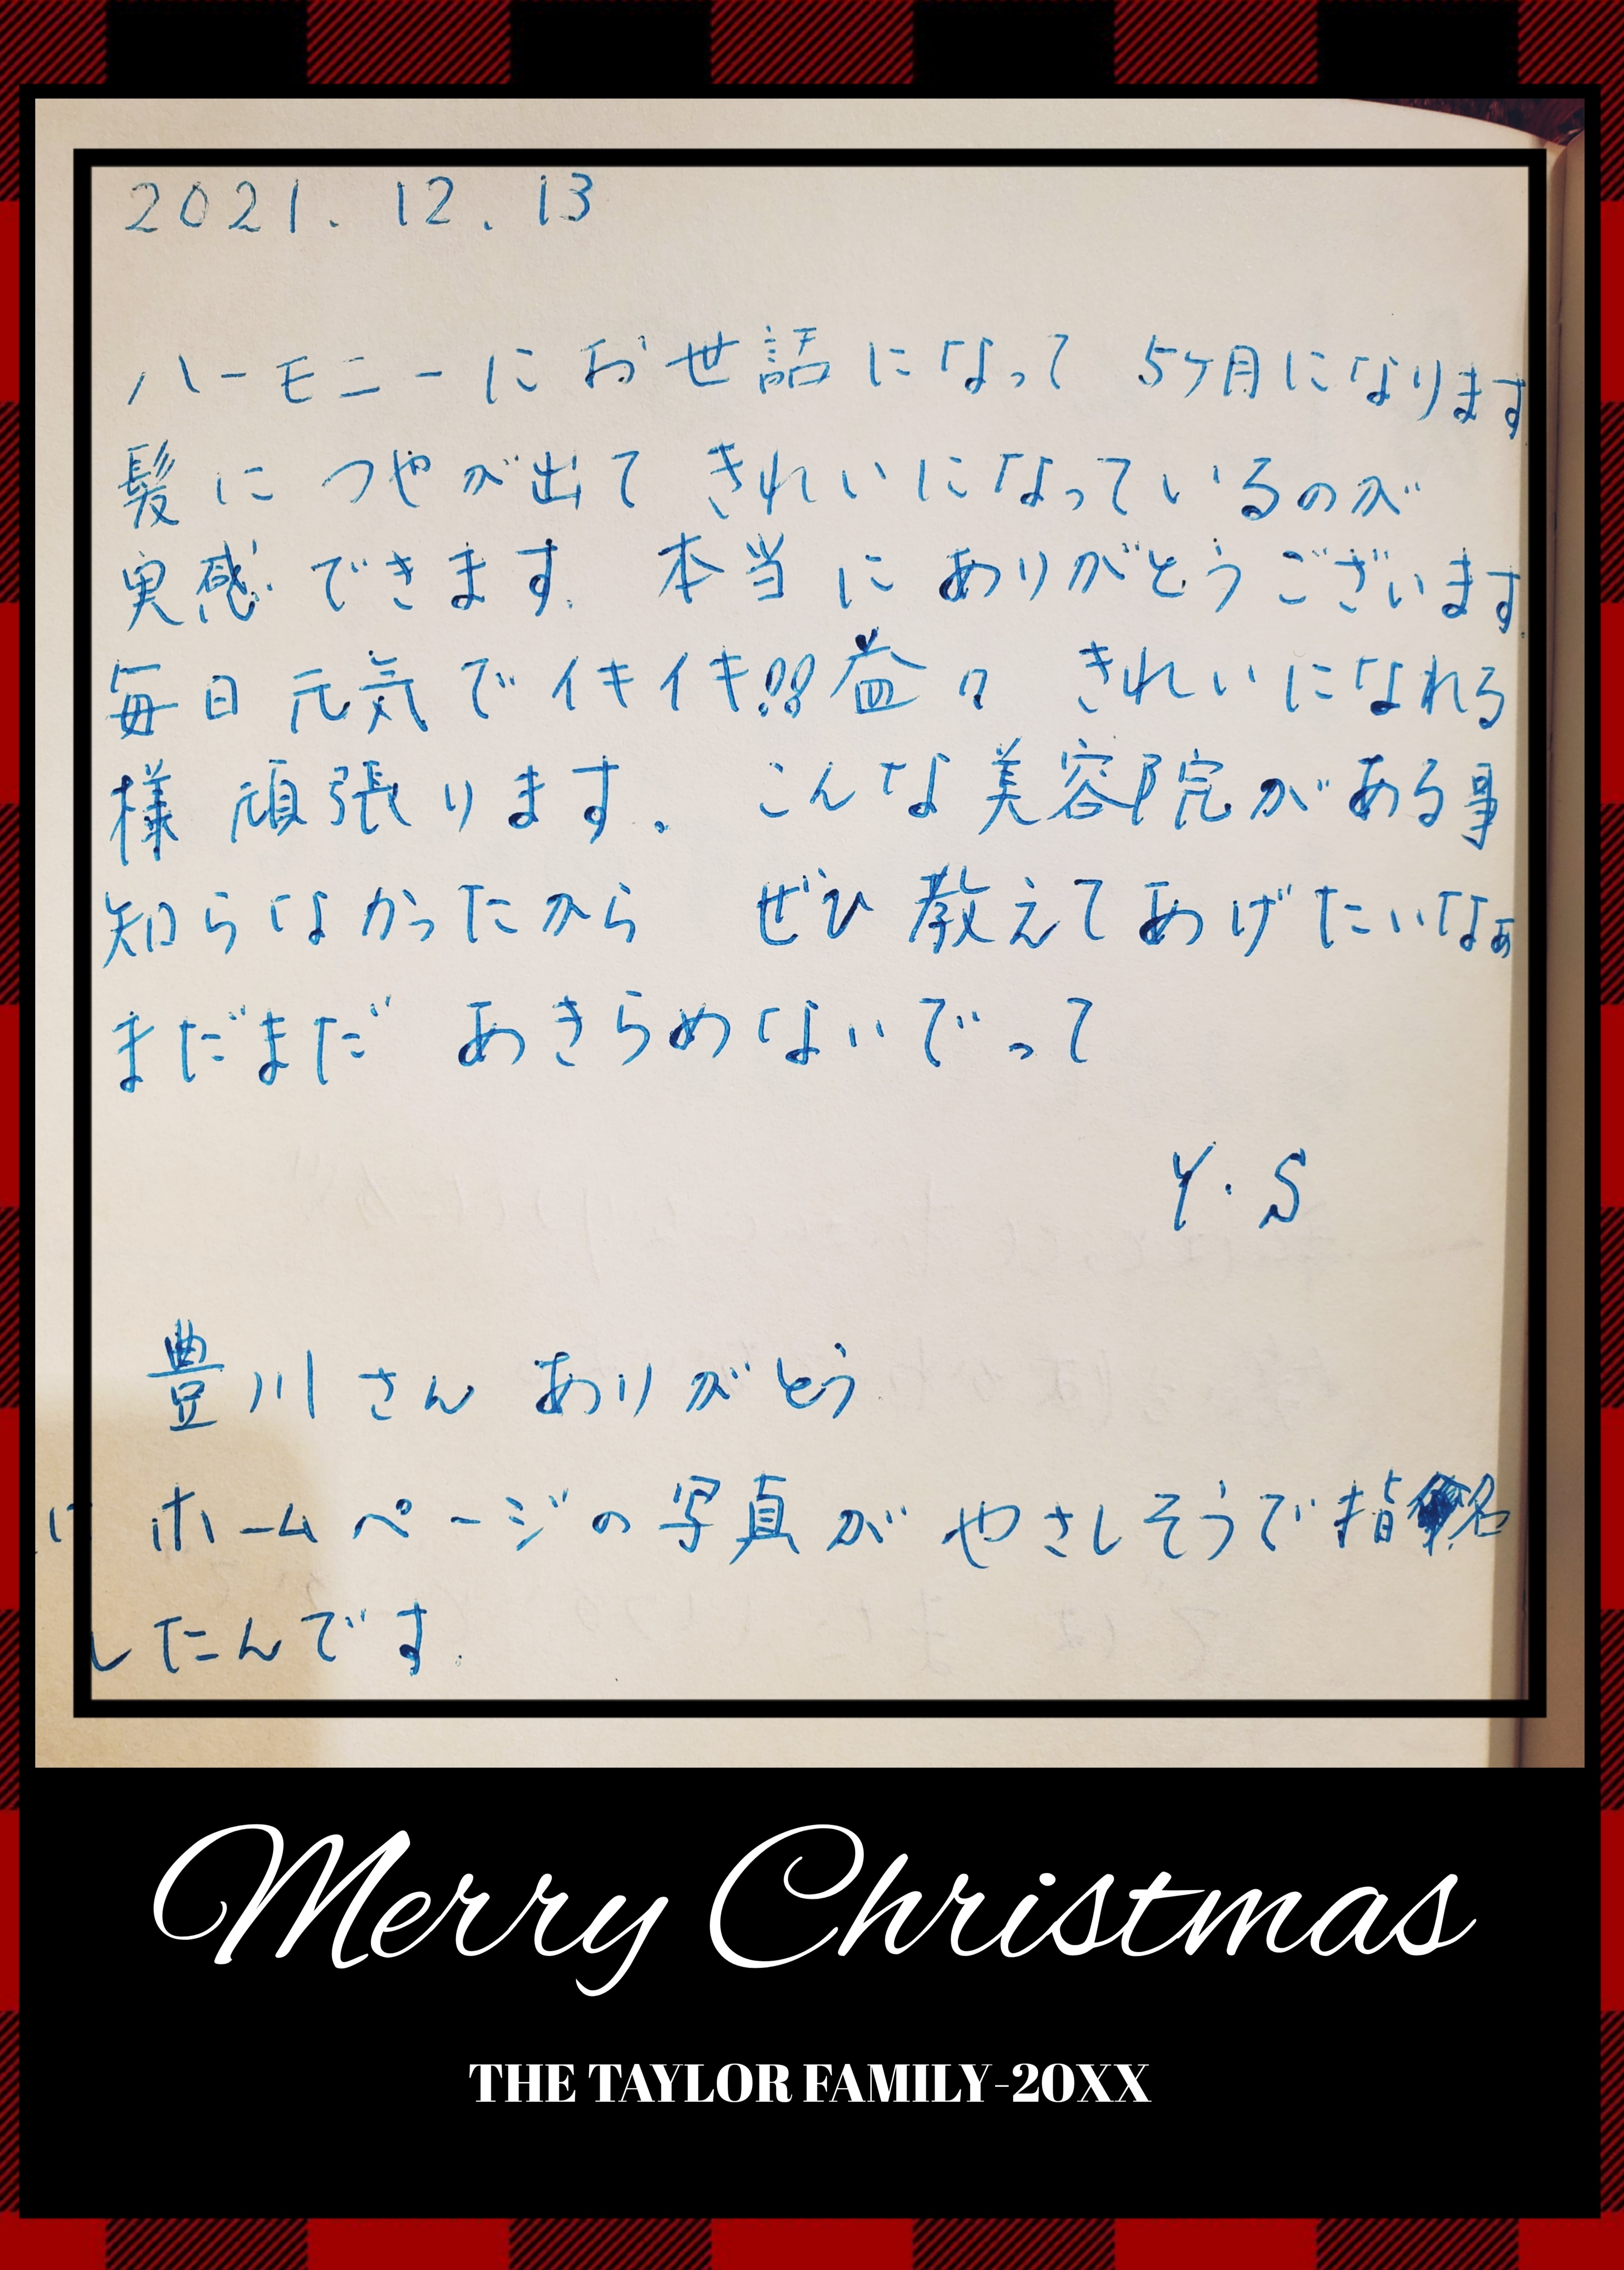 2021. 12. 13
ハーモニーにお世話になって 5ケ月になります
髪に つやが出て きれいになっているのが
実感できます. 本当に ありがとうございます.
毎日 元気で イキイキ!!益々 きれいになれる
様 頑張ります。 こんな美容院がある事
知らなかったから ぜひ 教えてあげたいなぁ
まだまだ あきらめないでって
Y・S
豊川さん ありがとう
ホームページの写真が やさしそうで指名
したんです.
Merry Christmas
THE TAYLOR FAMILY-20XX